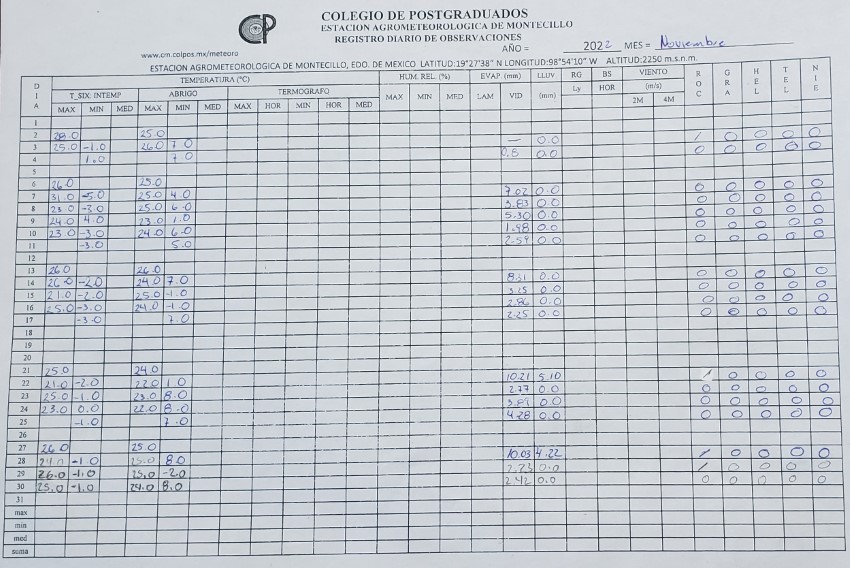 CP
COLEGIO DE POSTGRADUADOS
ESTACION AGROMETEOROLOGICA DE MONTECILLO
REGISTRO DIARIO DE OBSERVACIONES
www.cm.colpos.mx/meteoro
AÑO = 2022 MES = Noviembre
ESTACION AGROMETEOROLOGICA DE MONTECILLO, EDO. DE MEXICO LATITUD:19°27'38" N LONGITUD:98°54'10" W ALTITUD:2250 m.s.n.m.
DIA TEMPERATURA (°C) HUM. REL. (%) EVAP (mm) LLUV RG BS VIENTO ROC GRA HEL TEL NIE
T_SIX: INTEMP ABRIGO TERMOGRAFO (mm) Ly HOR (m/s)
MAX MIN MED MAX MIN MED MAX HOR MIN HOR MED MAX MIN MED LAM VID 2M 4M
1
2 28.0 25.0 / 0 0 0 0
3 25.0 -1.0 26.0 7.0 — 0.0 0 0 0 0 0
4 1.0 7.0 0.0
5
6 26.0 25.0 0 0 0 0 0
7 31.0 -5.0 25.0 4.0 7.02 0.0 0 0 0 0 0
8 23.0 -3.0 25.0 6.0 3.83 0.0 0 0 0 0 0
9 24.0 4.0 23.0 1.0 5.30 0.0 0 0 0 0 0
10 23.0 -3.0 24.0 6.0 1.98 0.0 0 0 0 0 0
11 -3.0 5.0 2.59 0.0
12
13 26.0 26.0 0 0 0 0 0
14 26.0 -2.0 24.0 7.0 8.31 0.0 0 0 0 0 0
15 21.0 -2.0 25.0 -1.0 3.25 0.0 0 0 0 0 0
16 25.0 -3.0 24.0 -1.0 2.86 0.0 0 0 0 0 0
17 -3.0 7.0 2.25 0.0
18
19
20
21 25.0 24.0 / 0 0 0 0
22 21.0 -2.0 22.0 1.0 10.21 5.10 0 0 0 0 0
23 25.0 -1.0 23.0 8.0 2.77 0.0 0 0 0 0 0
24 23.0 0.0 22.0 8.0 0.0 0 0 0 0 0
25 -1.0 7.0 4.28 0.0
26
27 26.0 25.0 / 0 0 0 0
28 -1.0 25.0 8.0 10.03 4.22 / 0 0 0 0
29 26.0 -1.0 25.0 -2.0 2.73 0.0 0 0 0 0 0
30 25.0 -1.0 24.0 8.0 2.42 0.0
31
max
min
med
suma